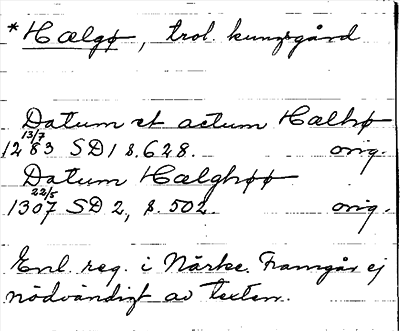 *Hælgø, trol. kungsgård
Datum et actum Hælhø
13/7
1283 SD 1 s. 628. orig.
Datum Hælghøø
22/5
1307 SD 2, s. 502. orig.
Enl. reg. i Närke. Framgår ej
nödvändigt av texten.